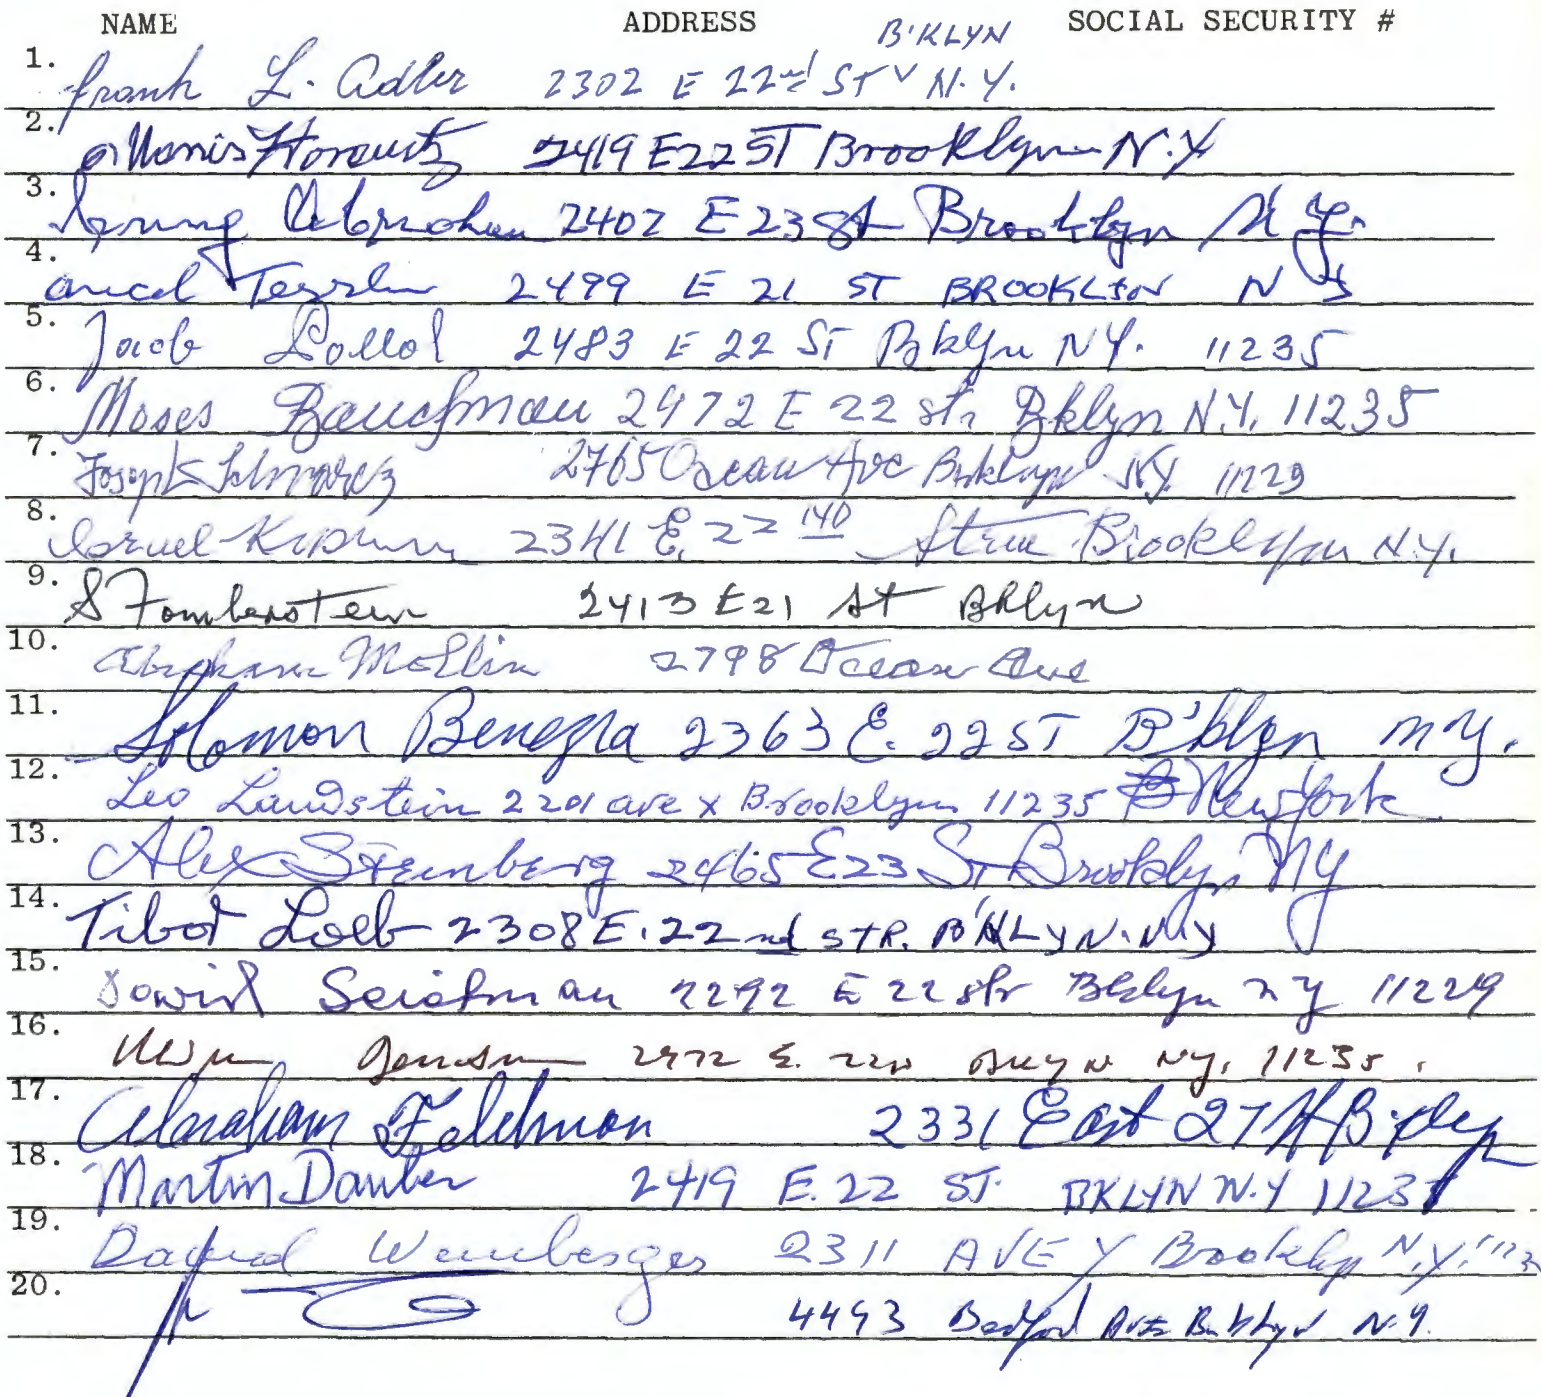 NAME ADDRESS SOCIAL SECURITY #
B'KLYN
1. Frank L. Adler 2302 E 22nd ST N.Y.
2. Morris Horowitz 2419 E 22 ST Brooklyn N.Y
3. Irving Abraham 2402 E 23 St Brooklyn N.Y.
4. 2499 E 21 ST BROOKLIN N Y
5. Jacob 2483 E 22 ST Bklyn NY. 11235
6. Moses 2472 E 22 str Bklyn N.Y. 11235
7. Joseph 2765 Ocean Ave Brklyn N.Y. 11229
8. Israel 2341 E. 22 Brooklyn N.Y.
9. S 2413 E 21 St Bklyn
10. Abraham Mollin 2798 Ocean Ave
11. Solomon Benezra 2363 E. 22 ST B'klyn N.Y.
12. Leo Landstein 2201 ave x Brooklyn 11235 New York
13. Alex Steinberg 2465 E 23 ST Brooklyn NY
14. Tibor Loeb 2308 E. 22nd STR. B'KLYN. N.Y
15. Dawid 2292 E 22 str Bklyn N Y 11229
16. 2472 E. NY. 11235.
17. Abraham Feldman 2331 East 27
18. Martin Dauber 2419 E. 22 ST. BKLYN N.Y 11235
19. David Weinberger 2311 AVE Y Brooklyn N.Y.
20. 4493 Bedford Ave N.Y.